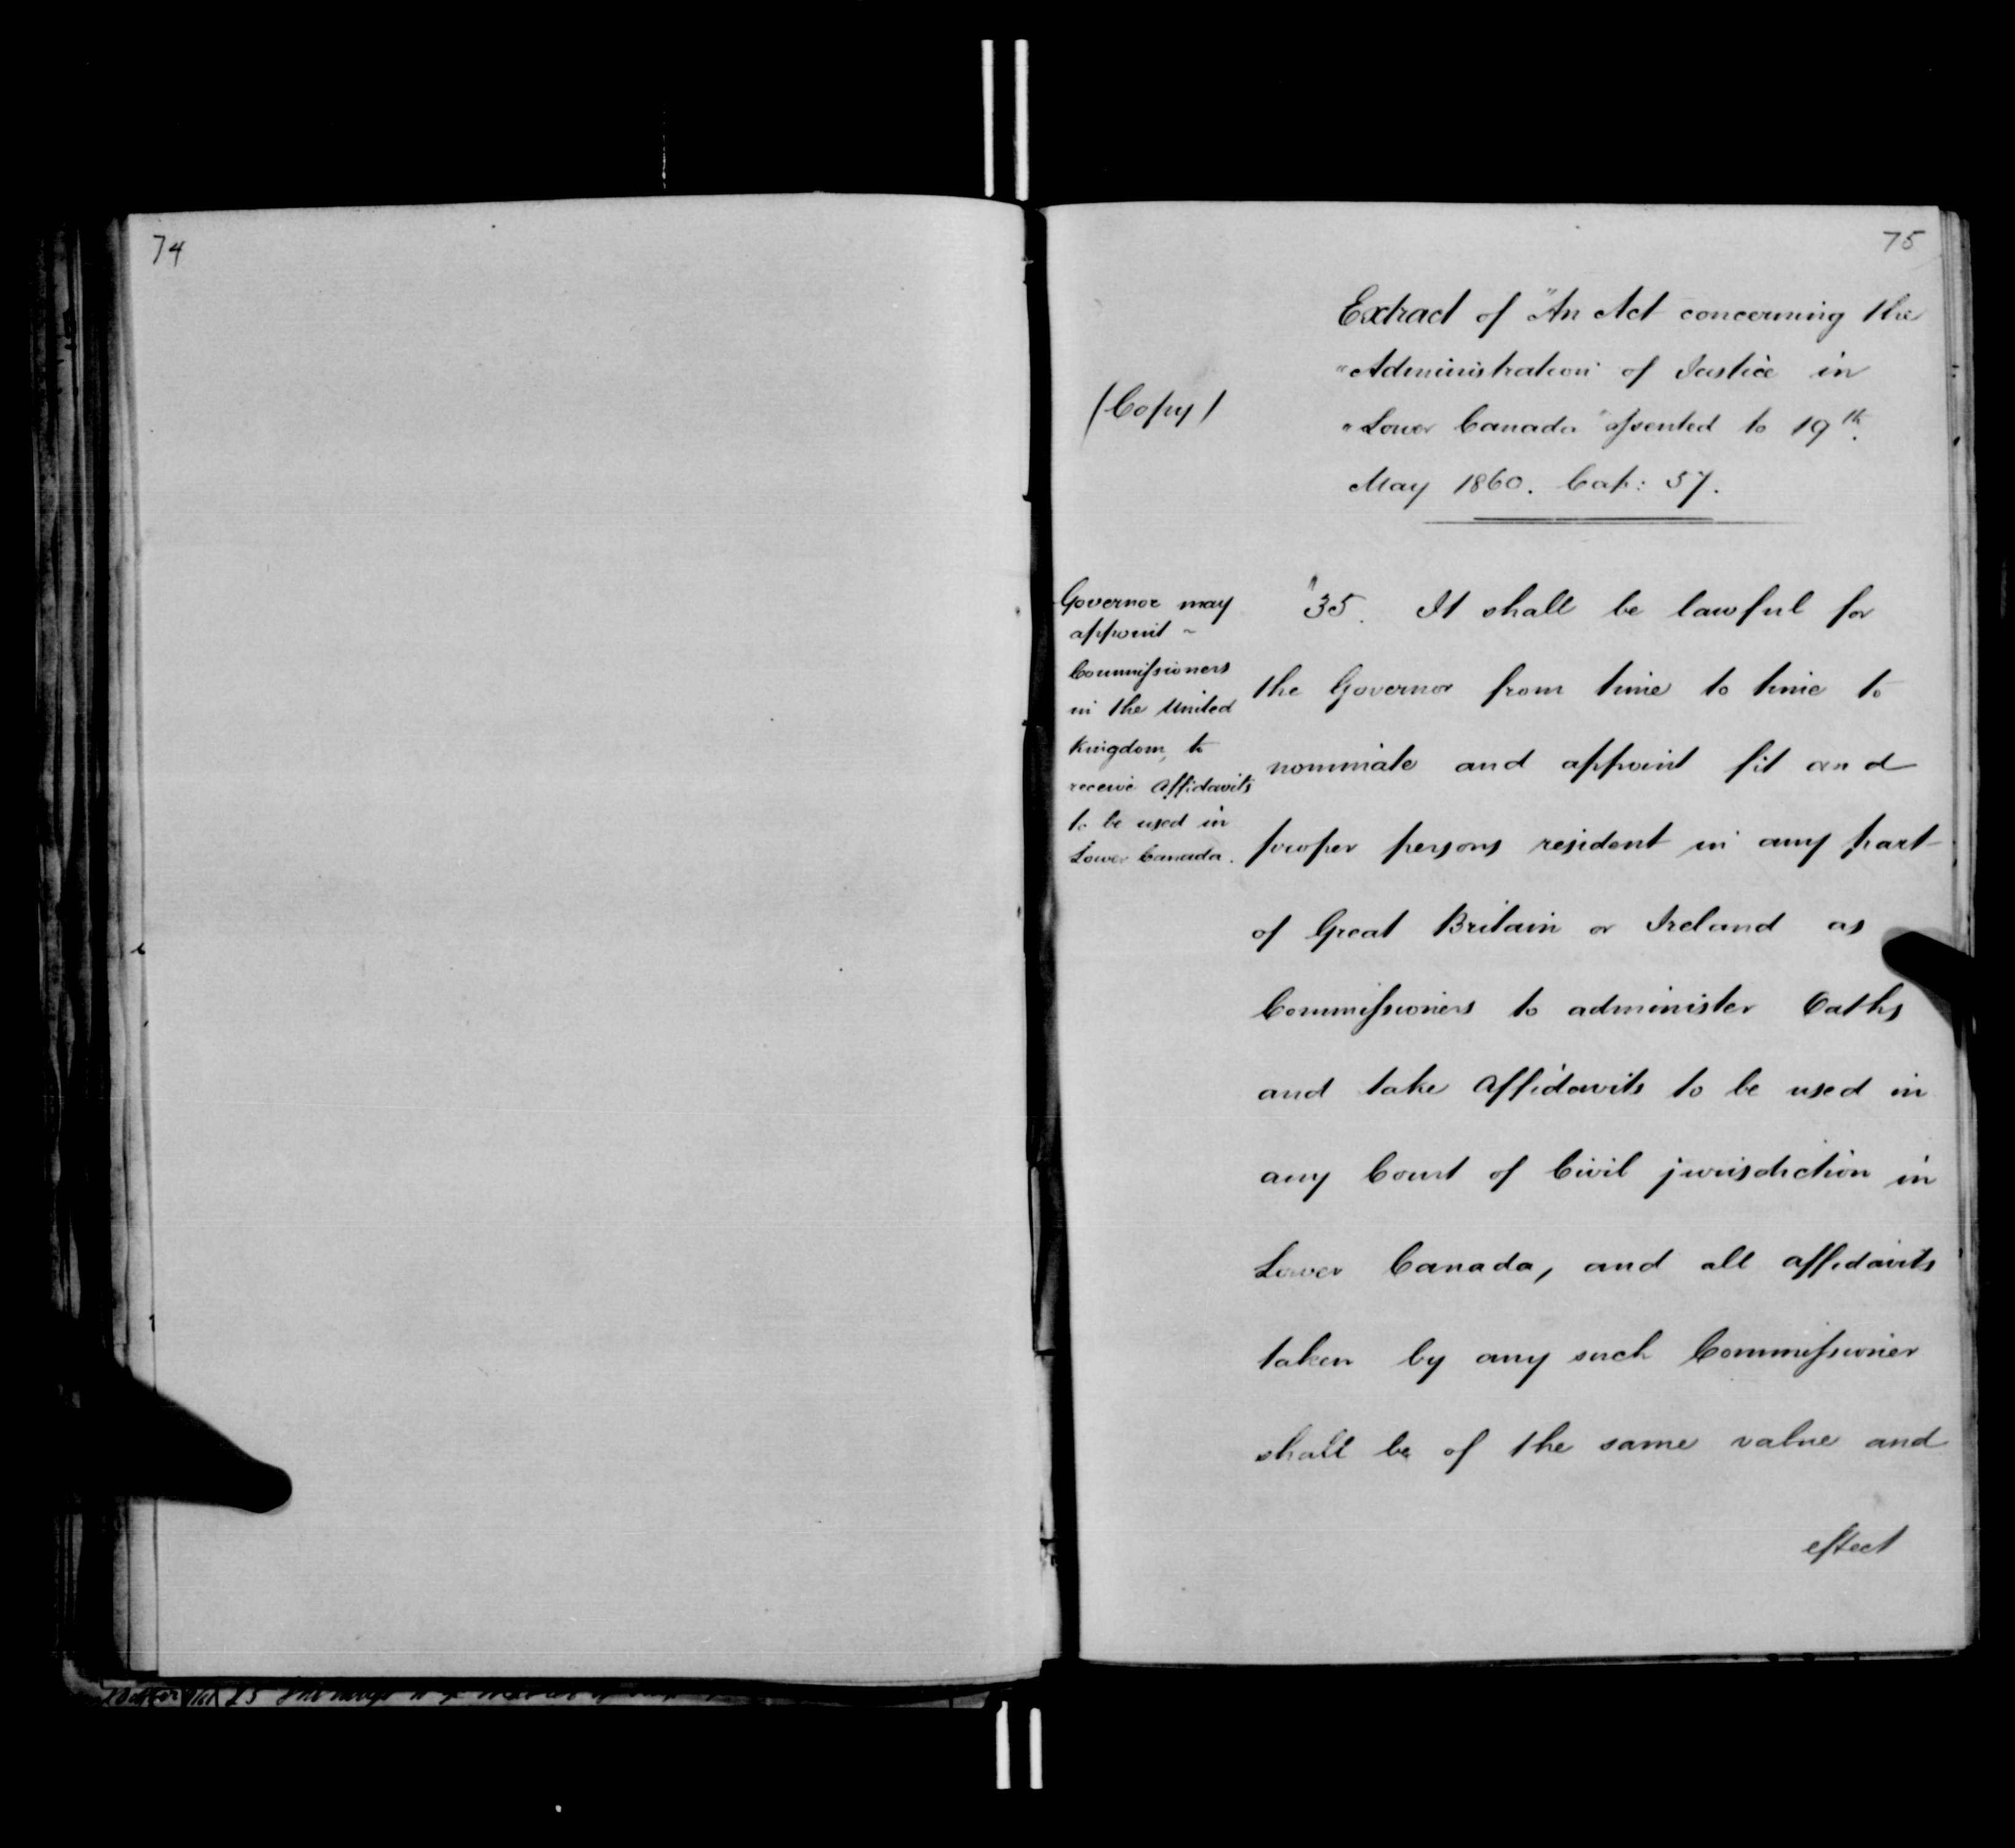 74
75
Extract of "An Act concerning the
"Administration of Justice in
"Lower Canada" assented to 19th.
May 1860. Cap: 57.
(Copy)
Governor may
appoint ~
Commissioners
in the United
Kingdom, to
receive Affidavits
to be used in
Lower Canada.
"35. It shall be lawful for
the Governor from time to time to
nominate and appoint fit and
proper persons resident in any part
of Great Britain or Ireland as
Commissioners to administer Oaths
and take Affidavits to be used in
any Court of Civil jurisdiction in
Lower Canada, and all affidavits
taken by any such Commissioner
shall be of the same value and
effect